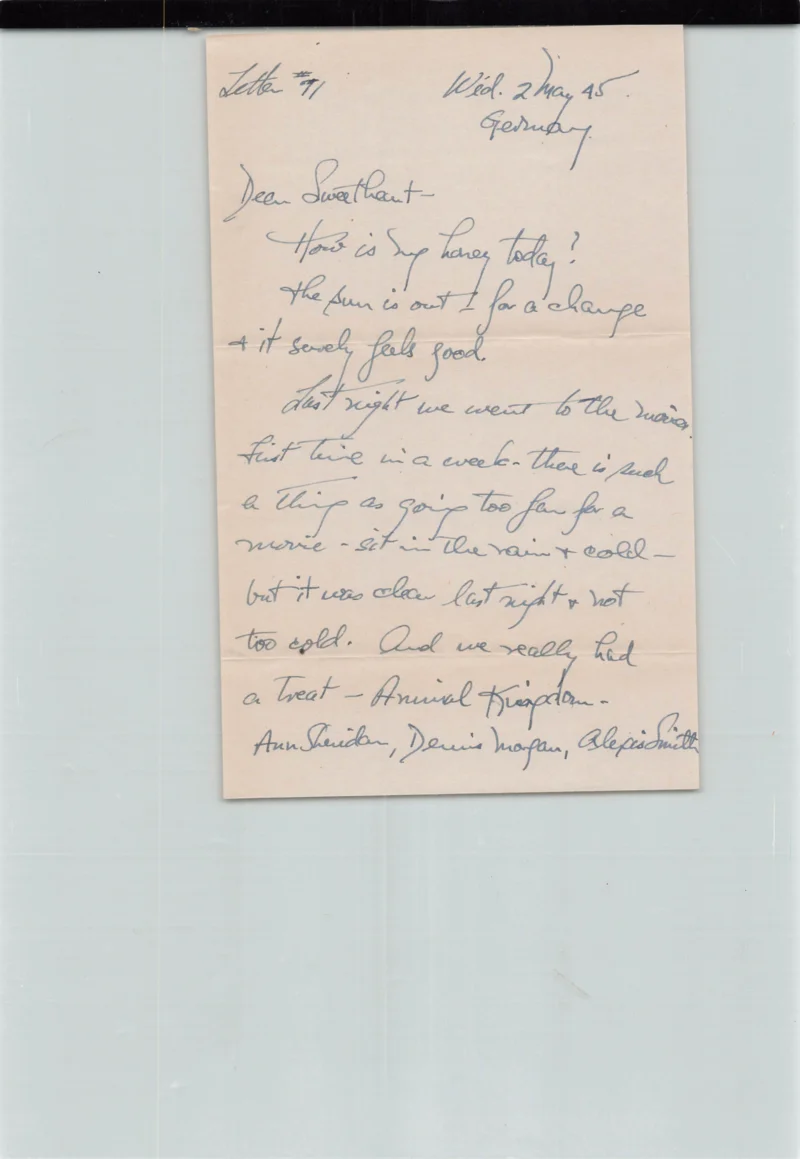 Letter #91
Wed. 2 May 45.
Germany.
Dear Sweetheart-
How is my honey today?
The sun is out for a change
+ it surely feels good.
Last night we went to the movies.
First time in a week - there is such
a thing as going too far for a
movie - sit in the rain + cold -
but it was clear last night + not
too cold. And we really had
a treat - Animal Kingdom -
Ann Sheridan, Dennis Morgan, Alexis Smith